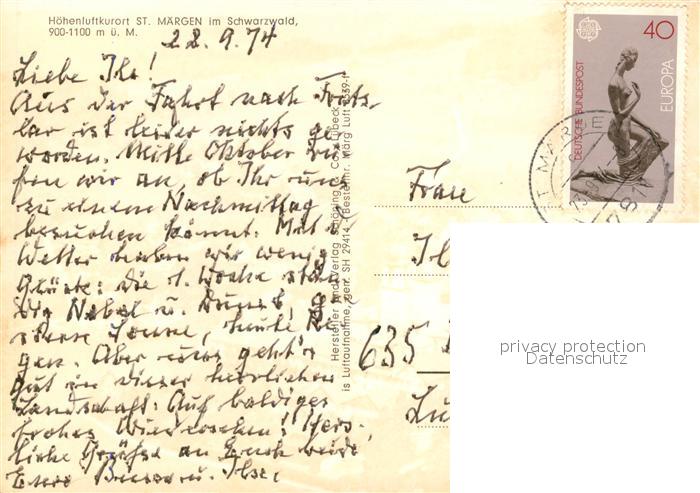 Höhenluftkurort ST. MÄRGEN im Schwarzwald,
900-1100 m ü. M.
22.9.74
Liebe Ihr!
Aus der Fahrt nach Fritz-
lar ist leider nichts ge-
worden. Mitte Oktober ru-
fen wir an, ob Ihr uns
zu einem Nachmittag
besuchen könnt. Mit d.
Wetter haben wir wenig
Glück: die 1. Woche stän-
dig Nebel u. Dunst,
Sonne, heute Re-
gen. Aber uns geht's
gut in dieser herrlichen
Landschaft. Auf baldiges
frohes Wiedersehen! Herz-
liche Grüße an Euch beide
Eure u. Ilse
Hersteller und Verlag Schöning & Co., Lübeck
is Luftaufnahme, gen. SH 29414 Bestellnr. Märg Luft 1539
40
EUROPA
DEUTSCHE BUNDESPOST
ST MÄRGE
781
Frau
635
privacy protection
Datenschutz